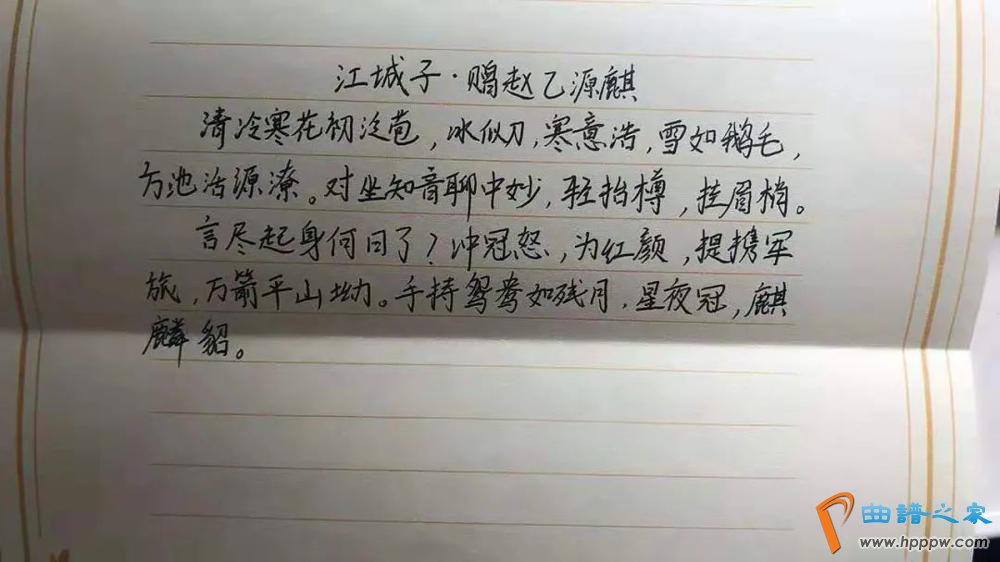 江城子·赐赵乙源麒
清冷寒花初泛苞，冰似刀，寒意浩，雪如鹅毛，
方池沽源潦。对坐知音聊中妙，轻抬樽，挂眉梢。
言尽起身何日了？冲冠怒，为红颜，提携军
旅，万箭平山坳。手持鸳鸯如残月，星夜冠，麒
麟貂。
曲谱之家
www.hpppw.com